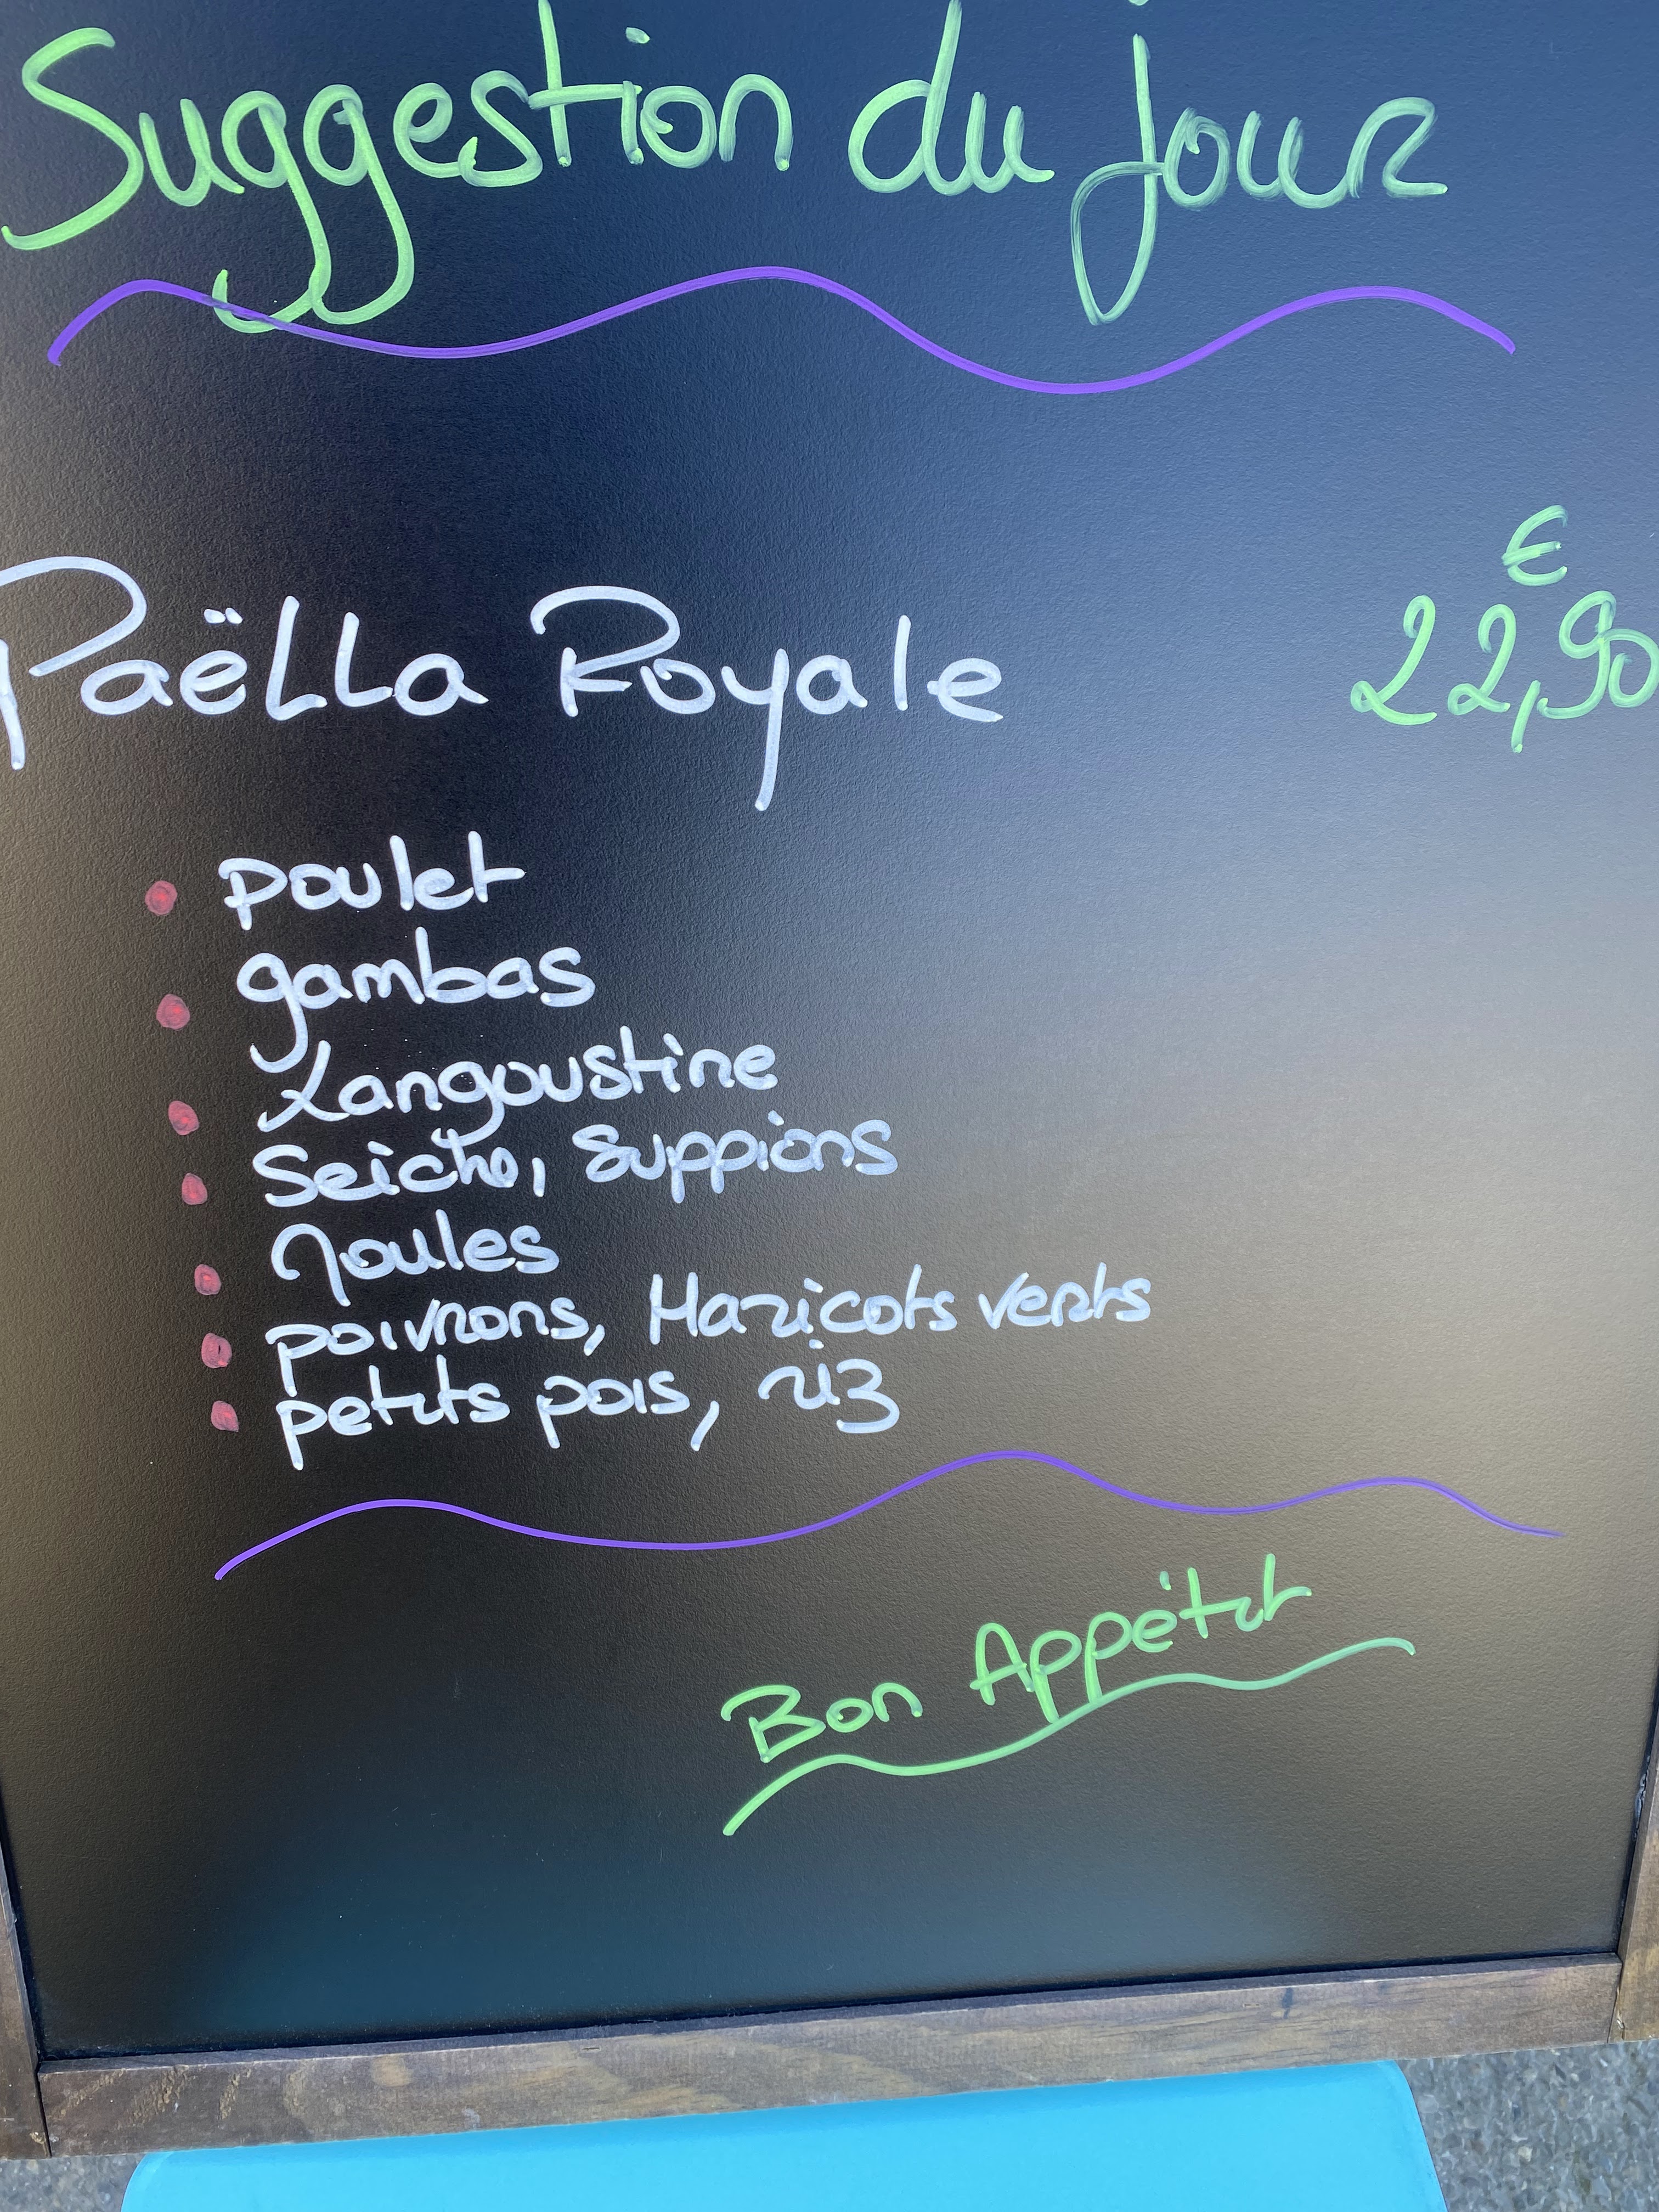 Suggestion du jour
€
Paëlla Royale 22,90
poulet
gambas
Langoustine
Seiche, Suppions
Moules
poivrons, Haricots verts
petits pois, riz
Bon Appétit